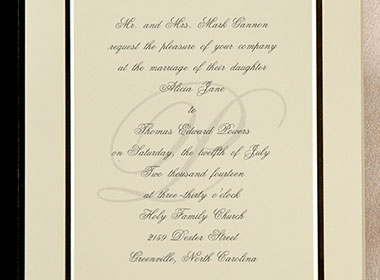 Mr. and Mrs. Mark Gannon
request the pleasure of your company
at the marriage of their daughter
Alicia Jane
to
Thomas Edward Powers
on Saturday, the twelfth of July
Two thousand fourteen
at three-thirty o'clock
Holy Family Church
2159 Dexter Street
Greenville, North Carolina
P